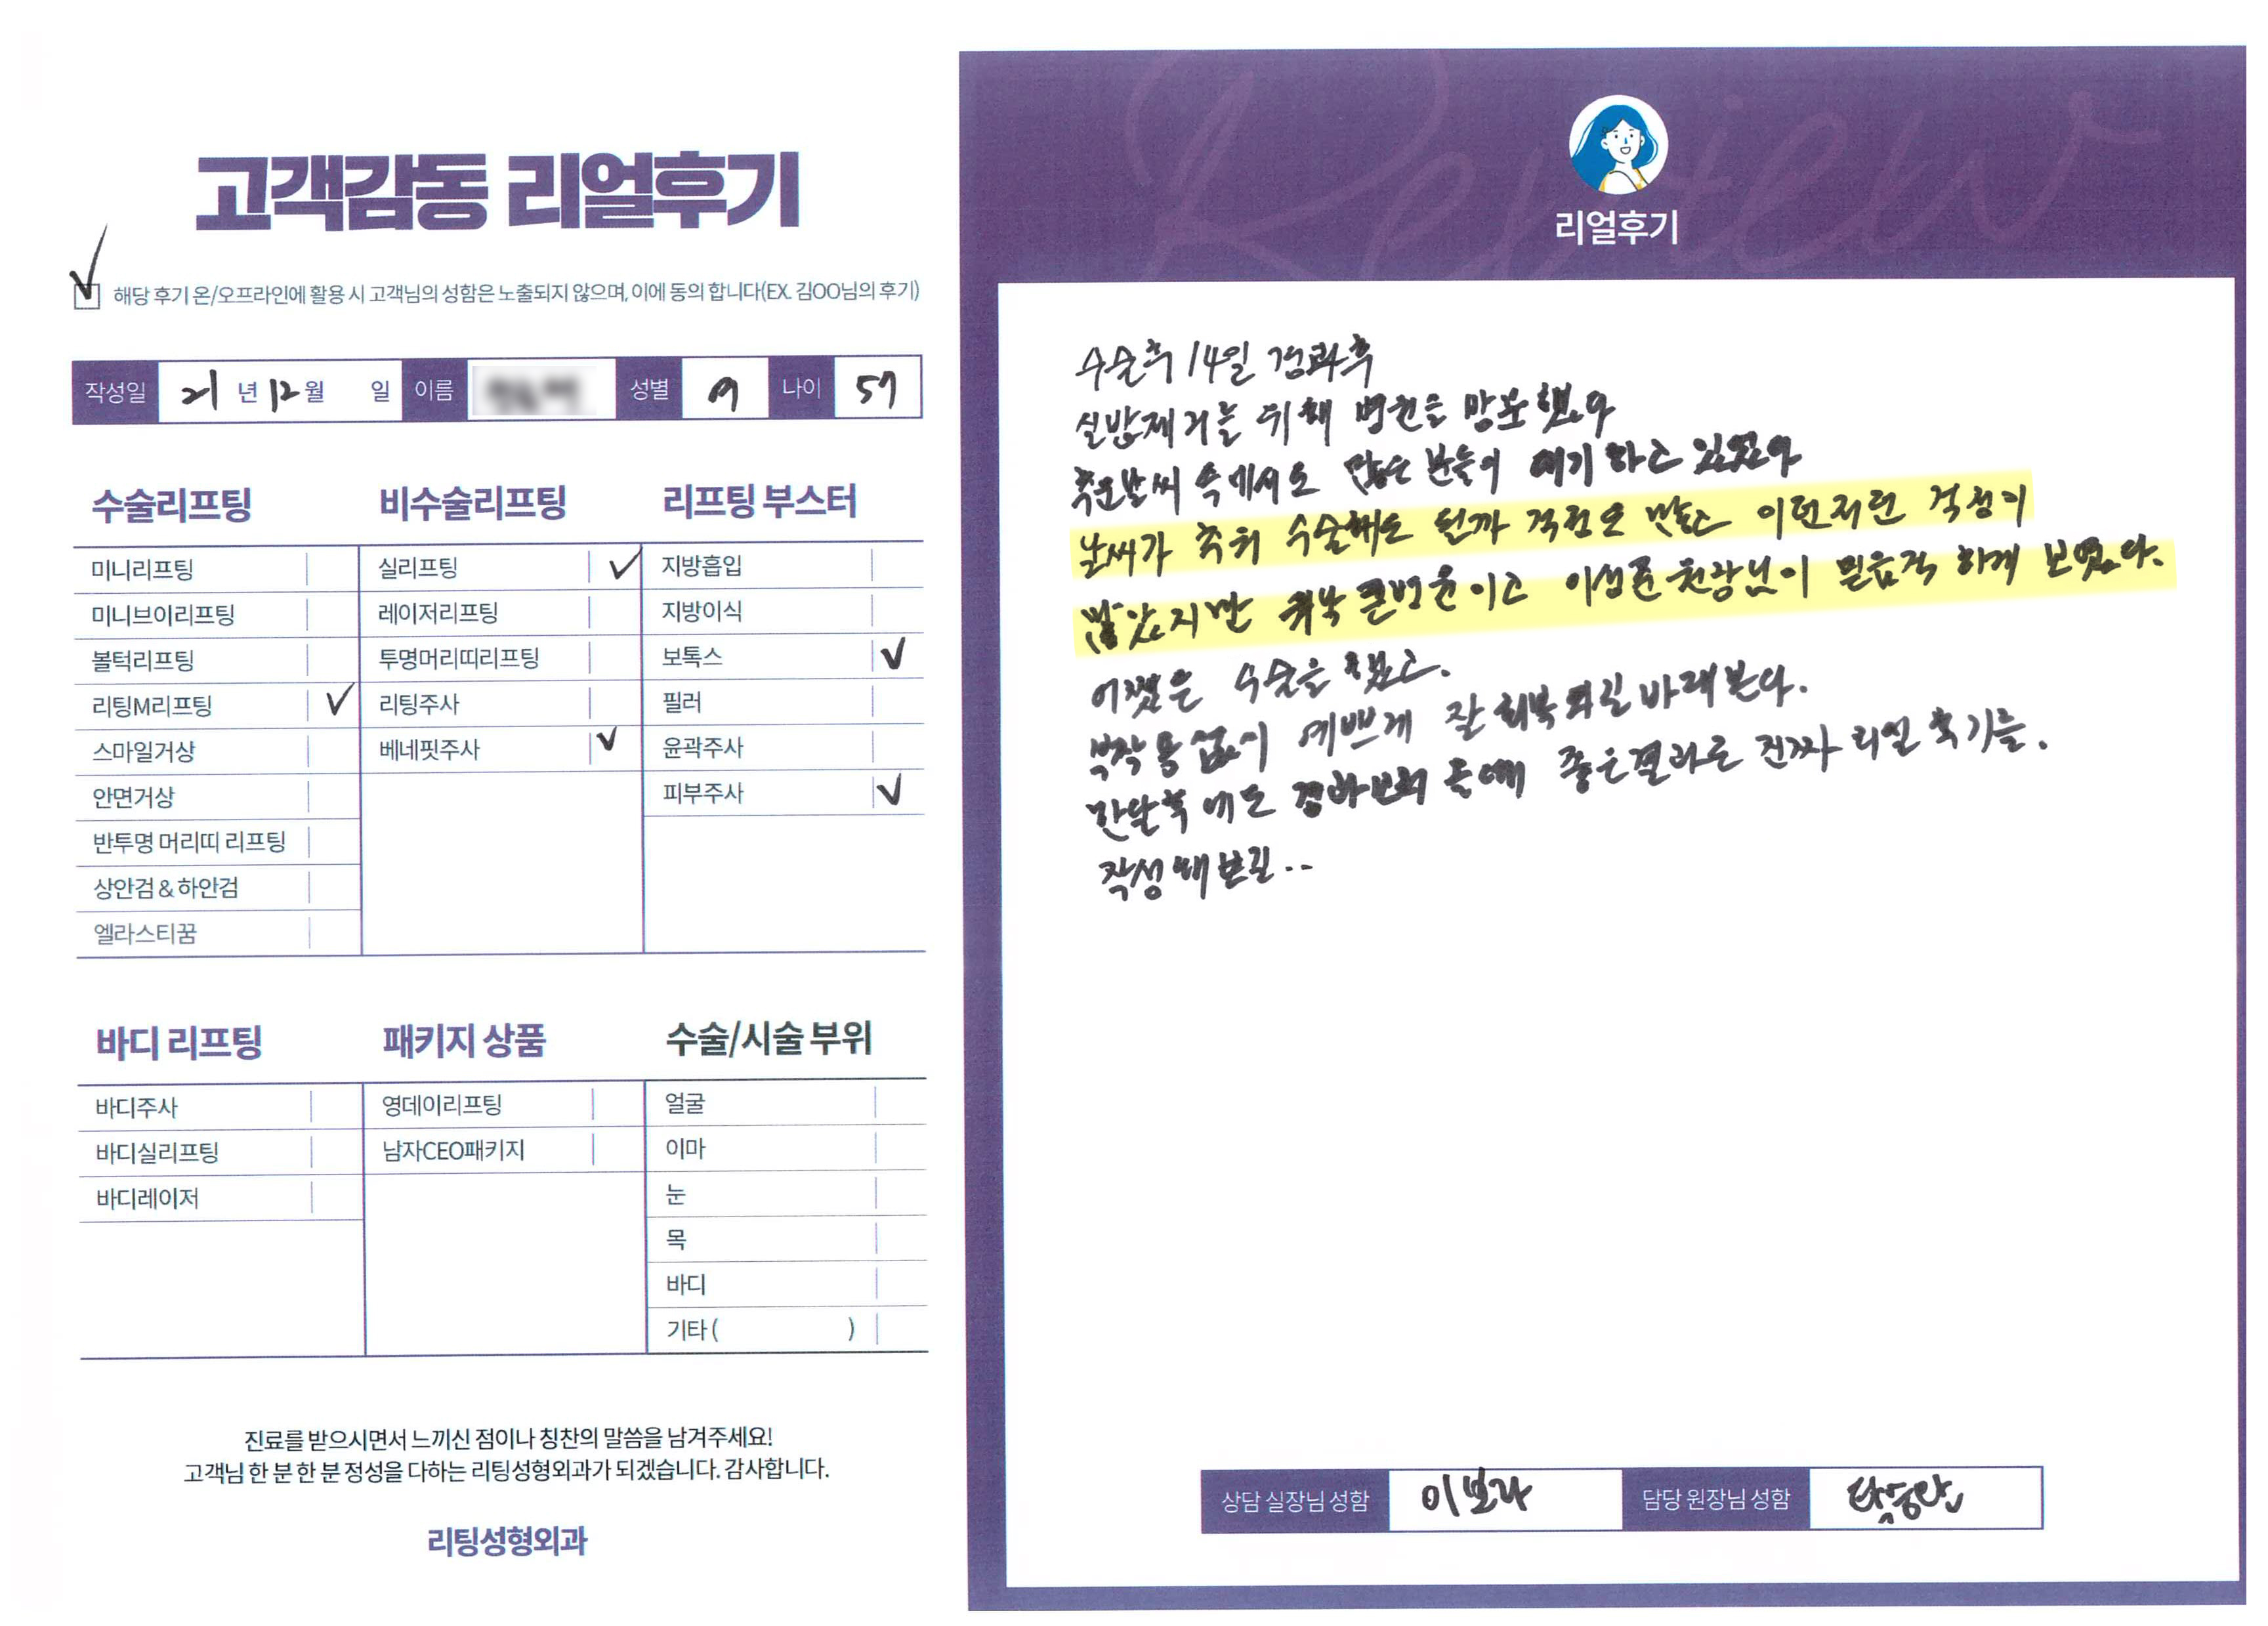 고객감동 리얼후기
해당 후기 온/오프라인에 활용 시 고객님의 성함은 노출되지 않으며, 이에 동의 합니다(EX. 김OO님의 후기)
작성일 21 년 12 월 일 이름 성별 여 나이 57
수술리프팅
미니리프팅
미니브이리프팅
볼턱리프팅
리팅M리프팅
스마일거상
안면거상
반투명 머리띠 리프팅
상안검 & 하안검
엘라스티꿈
비수술리프팅
실리프팅
레이저리프팅
투명머리띠리프팅
리팅주사
베네핏주사
리프팅 부스터
지방흡입
지방이식
보톡스
필러
윤곽주사
피부주사
바디 리프팅
바디주사
바디실리프팅
바디레이저
패키지 상품
영데이리프팅
남자CEO패키지
수술/시술 부위
얼굴
이마
눈
목
바디
기타 ( )
진료를 받으시면서 느끼신 점이나 칭찬의 말씀을 남겨주세요!
고객님 한 분 한 분 정성을 다하는 리팅성형외과가 되겠습니다. 감사합니다.
리팅성형외과
Review
리얼후기
수술후 14일 경과후
실밥제거를 위해 병원을 방문했다
추운날씨 속에서도 많은 분들이 대기하고 있었다
날씨가 추워 수술해도 될까 걱정도 많고 이런저런 걱정이
많았지만 워낙 큰병원이고 원장님이 믿음직 하게 보였다.
어쨌든 수술을 했고.
부작용없이 예쁘게 잘 회복되길 바래본다.
한달후에도 경과보러 올때 좋은결과로 진짜 리얼 후기를.
작성해보길..
상담 실장님 성함 이보라 담당 원장님 성함